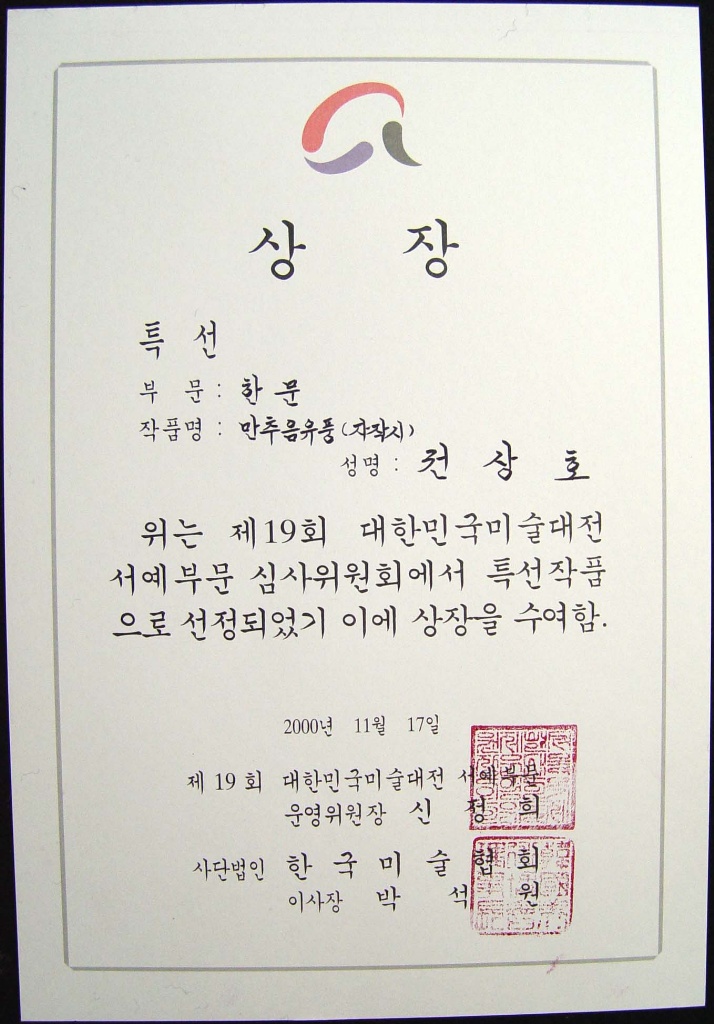 상 장
특 선
부 문 : 한 문
작품명 : 만추음유풍(자작시)
성명 : 권 상 호
위는 제19회 대한민국미술대전
서예부문 심사위원회에서 특선작품
으로 선정되었기 이에 상장을 수여함.
2000년 11월 17일
제 19 회 대한민국미술대전 서예부문
운영위원장 신 정 희
사단법인 한 국 미 술 협 회
이사장 박 석 원